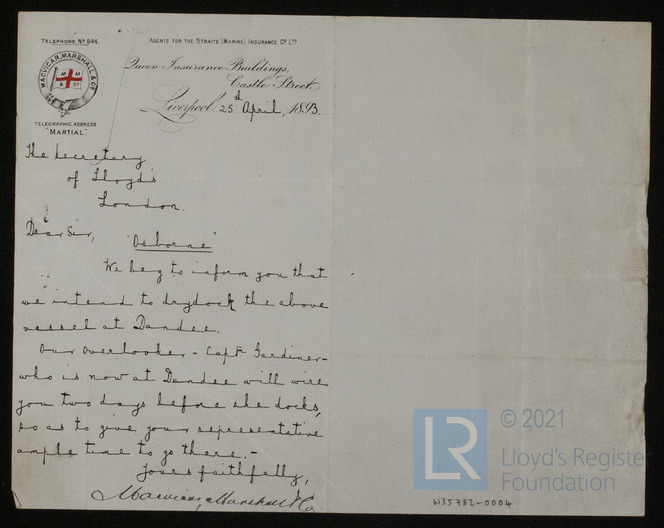 TELEPHONE No 844.
AGENTS FOR THE STRAITS (MARINE) INSURANCE Co LTD
MACVICAR, MARSHALL & Co
M M
& Co
TELEGRAPHIC ADDRESS
"MARTIAL"
Queen Insurance Buildings,
Castle Street,
Liverpool 25th April, 1893.
The Secretary
of Lloyd's
London.
Dear Sir,
"Osborne"
We beg to inform you that
we intend to drydock the above
vessel at Dundee.
Our overlooker - Capt Gardiner -
who is now at Dundee will wire
you two days before she docks,
so as to give your representative
ample time to go there. -
Yours faithfully,
Macvicar, Marshall & Co
LR
© 2021
Lloyd's Register
Foundation
W35782-0004